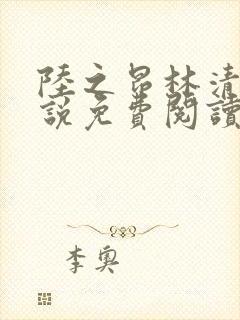 陸之昂林清
說免費閱讀
李奧